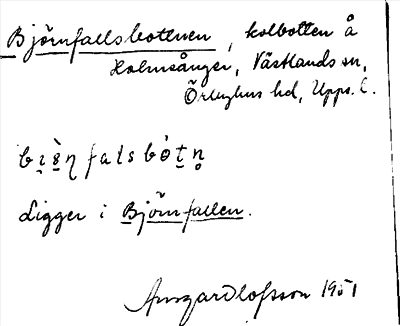 Björnfallsbottnen, kolbotten å
Holmsånger, Västlands sn,
Örbyhus hd, Upps. l.
bi̯ö̀ṇfalsbòt̠n̥
Ligger i Björnfallen.
Ansgar Olofsson 1951